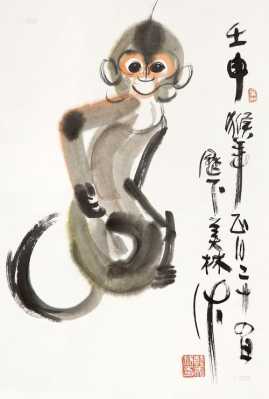 壬申
猴年正月二十四日
历下美林作